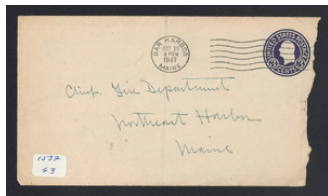 BAR HARBOR
DEC 29
1947
MAINE
UNITED STATES POSTAGE
3 CENTS 3
Fire Department
Northeast Harbor
Maine